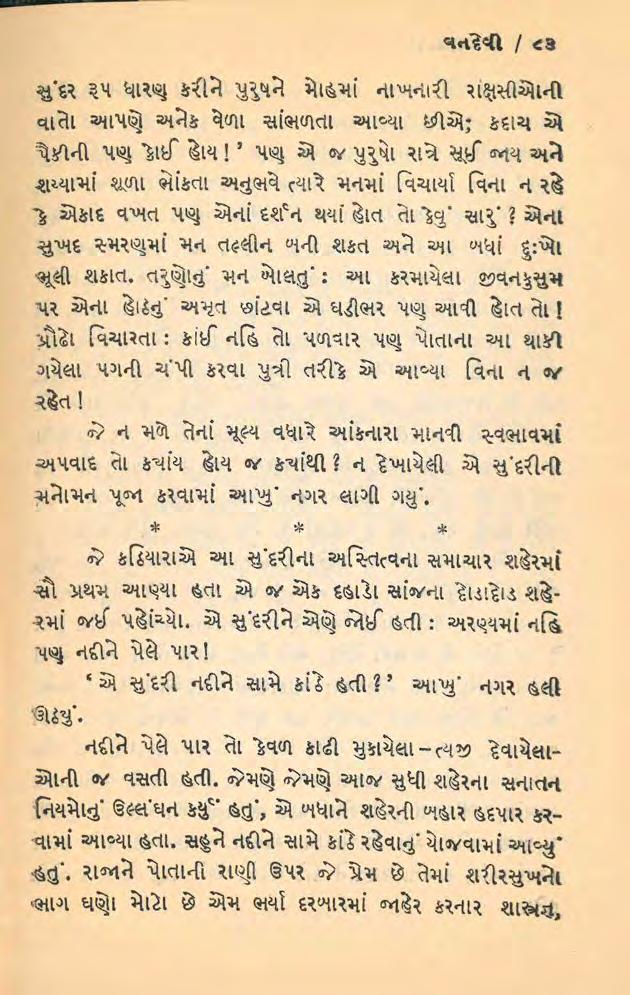 વનદેવી / ૮૩
સુંદર રૂપ ધારણ કરીને પુરુષને મોહમાં નાખનારી રાક્ષસીઓની
વાતો આપણે અનેક વેળા સાંભળતા આવ્યા છીએ; કદાચ એ
પૈકીની પણ કોઈ હોય ! ’ પણ એ જ પુરુષો રાત્રે સૂઈ જાય અને
શય્યામાં શૂળા ભોંકતા અનુભવે ત્યારે મનમાં વિચાર્યા વિના ન રહે
કે એકાદ વખત પણ એનાં દર્શન થયાં હોત તો કેવું સારું ? એના
સુખદ સ્મરણમાં મન તલ્લીન બની શકત અને આ બધાં દુઃખો
ભૂલી શકાત. તરુણોનું મન બોલતું : આ કરમાયેલા જીવનકુસુમ
પર એના હોઠનું અમૃત છાંટવા એ ઘડીભર પણ આવી હોત તો !
પ્રૌઢો વિચારતા : કાંઈ નહિ તો પળવાર પણ પોતાના આ થાકી
ગયેલા પગની ચંપી કરવા પુત્રી તરીકે એ આવ્યા વિના ન જ
રહેત !
જે ન મળે તેનાં મૂલ્ય વધારે આંકનારા માનવી સ્વભાવમાં
અપવાદ તો કયાંય હોય જ કયાંથી ? ન દેખાયેલી એ સુંદરીની
મનોમન પૂજા કરવામાં આખું નગર લાગી ગયું.
* * *
જે કઠિયારાએ આ સુંદરીના અસ્તિત્વના સમાચાર શહેરમાં
સૌ પ્રથમ આણ્યા હતા એ જ એક દહાડો સાંજના દોડાદોડ શહે-
રમાં જઈ પહોંચ્યો. એ સુંદરીને એણે જોઈ હતી : અરણ્યમાં નહિ
પણ નદીને પેલે પાર !
‘ એ સુંદરી નદીને સામે કાંઠે હતી ? ’ આખું નગર હલી
ઊઠયું.
નદીને પેલે પાર તો કેવળ કાઢી મુકાયેલા – ત્યજી દેવાયેલા-
ઓની જ વસતી હતી. જેમણે જેમણે આજ સુધી શહેરના સનાતન
નિયમોનું ઉલ્લંઘન કર્યું હતું, એ બધાને શહેરની બહાર હદપાર કર-
વામાં આવ્યા હતા. સહુને નદીને સામે કાંઠે રહેવાનું યોજવામાં આવ્યું
હતું. રાજાને પોતાની રાણી ઉપર જે પ્રેમ છે તેમાં શરીરસુખનો
ભાગ ઘણો મોટો છે એમ ભર્યા દરબારમાં જાહેર કરનાર શાસ્ત્રજ્ઞ,